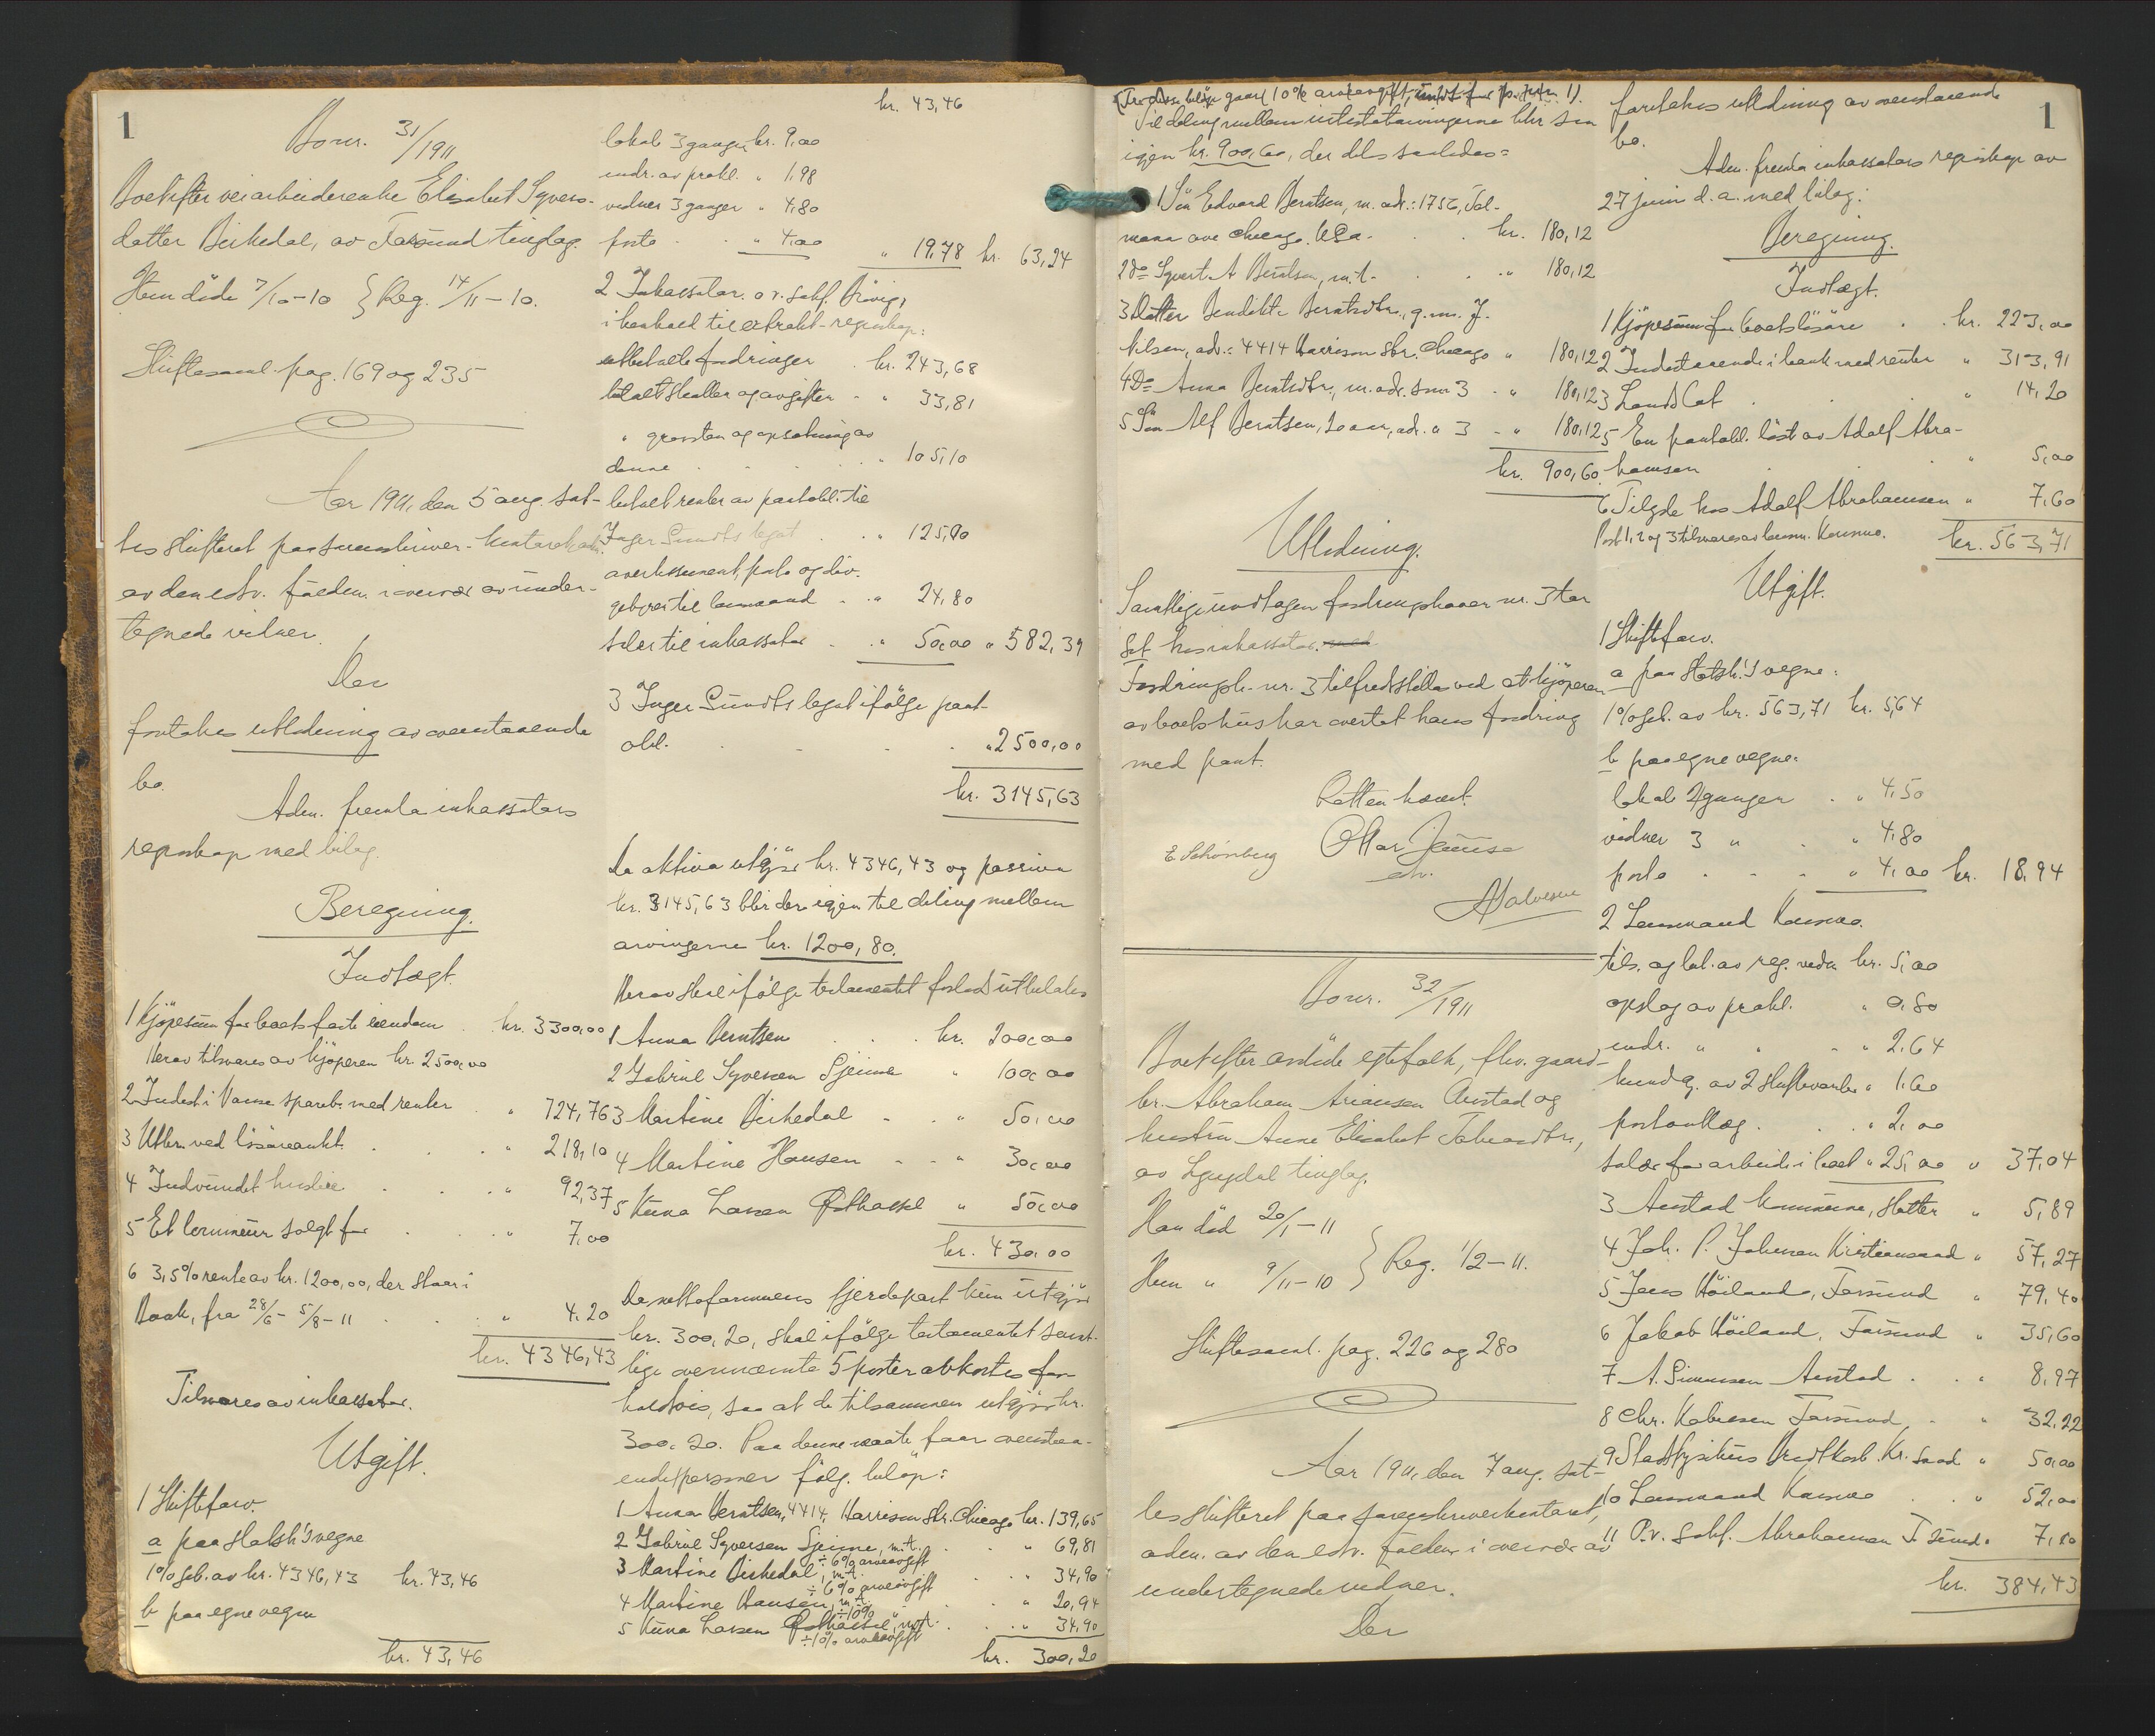 1
Bonr. 31/1911
Boet efter veiarbeiderenke Elisabet Syvers-
datter Birkedal, av Farsund tinglag.
Hun døde 7/10-10 } Reg. 14/11-10.
Skiftesaml. pag. 169 og 235
Aar 1911, den 5 aug. sat-
tes skifteret paa sorenskriver-kontoret
av den edsv. fuldm. i overvær av under-
tegnede vidner.
Der
foretokes utlodning av ovenstaaende
bo.
Adm. fremla inkassators
regnskap med bilag.
Beregning.
Indtægt.
1 Kjöpesum for boets faste eiendom . kr. 3300,00
Herav tilsvares av kjöperen kr. 2500,00
2 Indest. i Vanse spareb. med renter . " 724,76
3 Utbr. ved lösöreaukt. . . . " 218,10
4 Indvundet husleie . . . " 92,37
5 Et kommune solgt for . . . " 7,00
6 3,5% rente av kr. 1200,00, der staar i
Bank, fra 28/6 - 5/8-11 . . . " 4.20
kr. 4346,43
Tilsvares av inkassator.
Utgift.
1 Skiftefarv.
a paa statsk's vegne
1% geb. av kr. 4346,43 kr. 43,46
b paa egne vegne
kr. 43,46
kr. 43,46
lokale 3 ganger kr. 9,00
endr. av prokl. " 1,98
vidner 3 ganger " 4,80
porto . . " 4,00 " 19,78 kr. 63,24
2 Inkassator o.r. sakf. Brövig,
i henhold til extrakt-regnskap:
utbetalte fordringer . kr. 243,68
betalt skatter og avgifter . " 33,81
" gravsten og opsetning av
denne . . . . " 105,10
betalt renter av pantobl. til
Inger Sundts legat . . " 125,00
avertissement, porto og div.
gebyrer til lensmand . . " 24,80
salær til inkassator . . " 50,00 " 582,39
3 Inger Sundts legat ifölge pant-
obl. . . . . " 2500,00
kr. 3145,63
Da aktiva utgjør kr. 4346,43 og passiva
kr. 3145,63 blir der igjen til deling mellem
arvingerne kr. 1200,80.
Herav skal ifölge testamentet forlods utbetales
1 Anna Berntsen . . kr. 200,00
2 Gabriel Syversen Sjeime " 100,00
3 Martine Birkedal . . " 50,00
4 Martine Hansen . . " 30,00
5 Kuna Larsen Østhassel " 50,00
kr. 430,00
Da nettoformuens fjerdepart kun utgjør
kr. 300,20, skal ifölge testamentet samt-
lige ovennævnte 5 poster avkortes for-
holdsvis, saa at de tilsammen utgjör kr.
300,20. Paa denne maate faar ovenstaa-
ende personer fölg. belöp:
1 Anna Berntsen, 4414, Harrison Str. Chicago kr. 139,65
2 Gabriel Syversen Sjeime, m.t. . " 69,81
÷ 6% arveavgift
3 Martine Birkedal, m.t. . . " 34,90
÷ 6% arveavgift
4 Martine Hansen, m.t. . . " 20,94
÷ 10% "
5 Kuna Larsen Østhassel, m.t. . . " 34,90
÷ 10% arveavgift
kr. 300,20
1
(Fra disse belöp gaar 10% arveavgift, undt. for p. nr. 1).
Til deling mellem intestatarvingerne blir saa
igjen kr. 900,60, der deles saaledes:
1 Sön Edvard Berntsen, m. adr.: 1756, Tal-
mann ave Chicago, USA. . . kr. 180,12
2 do Syvert A Berntsen, m.t. . . " 180,12
3 Datter Bendikte Berntsdtr., g.m. J.
Nilsen, adr.: 4414 Harrison Str. Chicago " 180,12
4 Do Anna Berntsdtr., m. adr. som 3 . " 180,12
5 Sön Alf Berntsen, 20 aar, adr. " 3 . " 180,12
kr. 900,60
Utlodning.
Samtlige undtagen fordringshaver nr. 3 tar
sit hos inkassator.
Fordringsh. nr. 3 tilfredsstilles ved at kjöperen
av boets hus har overtat hans fordring
med pant.
Retten hævet.
Ottar Jensen
edsv.
E Schönberg
A Halvorsen
Bonr. 32/1911
Boet efter avdöde egtefolk, fhv. gaard-
br. Abraham Ariansen Austad og
hustru Anne Elisabet Tobiasdtr.,
av Lyngdal tinglag.
Han död 20/1-11
Hun " 9/11-10 } Reg. 1/2-11.
Skiftesaml. pag. 226 og 280
Aar 1911, den 7 aug. sat-
tes skifteret paa sorenskriverkontoret,
adm. av den edsv. fuldm. i overvær av
undertegnede vidner.
Der
foretokes utlodning av ovenstaaende
bo.
Adm. fremla inkassators regnskap av
27 juni d.a. med bilag:
Beregning.
Indtægt.
1 Kjöpesum for boets lösöre . . kr. 223,00
2 Indestaaende i bank med renter " 313,91
3 Contant . . . " 14,20
5 En pantobl. löst av Adolf Abra-
hamsen . . . " 5,00
6 Tilgode hos Adolf Abrahamsen " 7,60
Post 1, 2 og 3 tilsvares av lensm. Kornmo. kr. 563,71
Utgift.
1 Skiftefarv.
a paa statsk's vegne:
1% geb. av kr. 563,71 kr. 5,64
b paa egne vegne:
lokale 2 ganger . " 4,50
vidner 3 " . " 4,80
porto . . . " 4,00 kr. 18,94
2 Lensmand Kornmo.
tils. og bet. av reg. vidn. kr. 5,00
opslag av prokl. " 0,80
endr. " " " 2,64
kundg. av 2 skiftevarsler " 1,60
portoutlæg . . . " 2,00
salær for arbeide i boet " 25,00 " 37,04
3 Austad kommune, skatter " 5,89
4 Joh. P. Johnsen Kristianssand " 57,27
5 Jens Höiland, Farsund " 79,40
6 Jakob Höiland, Farsund " 35,60
7 A. Simonsen Austad . . " 8,97
8 Chr. Kabiesen Farsund . " 32,22
9 Stadsfysikus Kr.sand " 50,00
10 Lensmand Kornmo . . " 52,00
11 O.r. sakf. Abrahamsen F.sund " 7,10
kr. 384,43